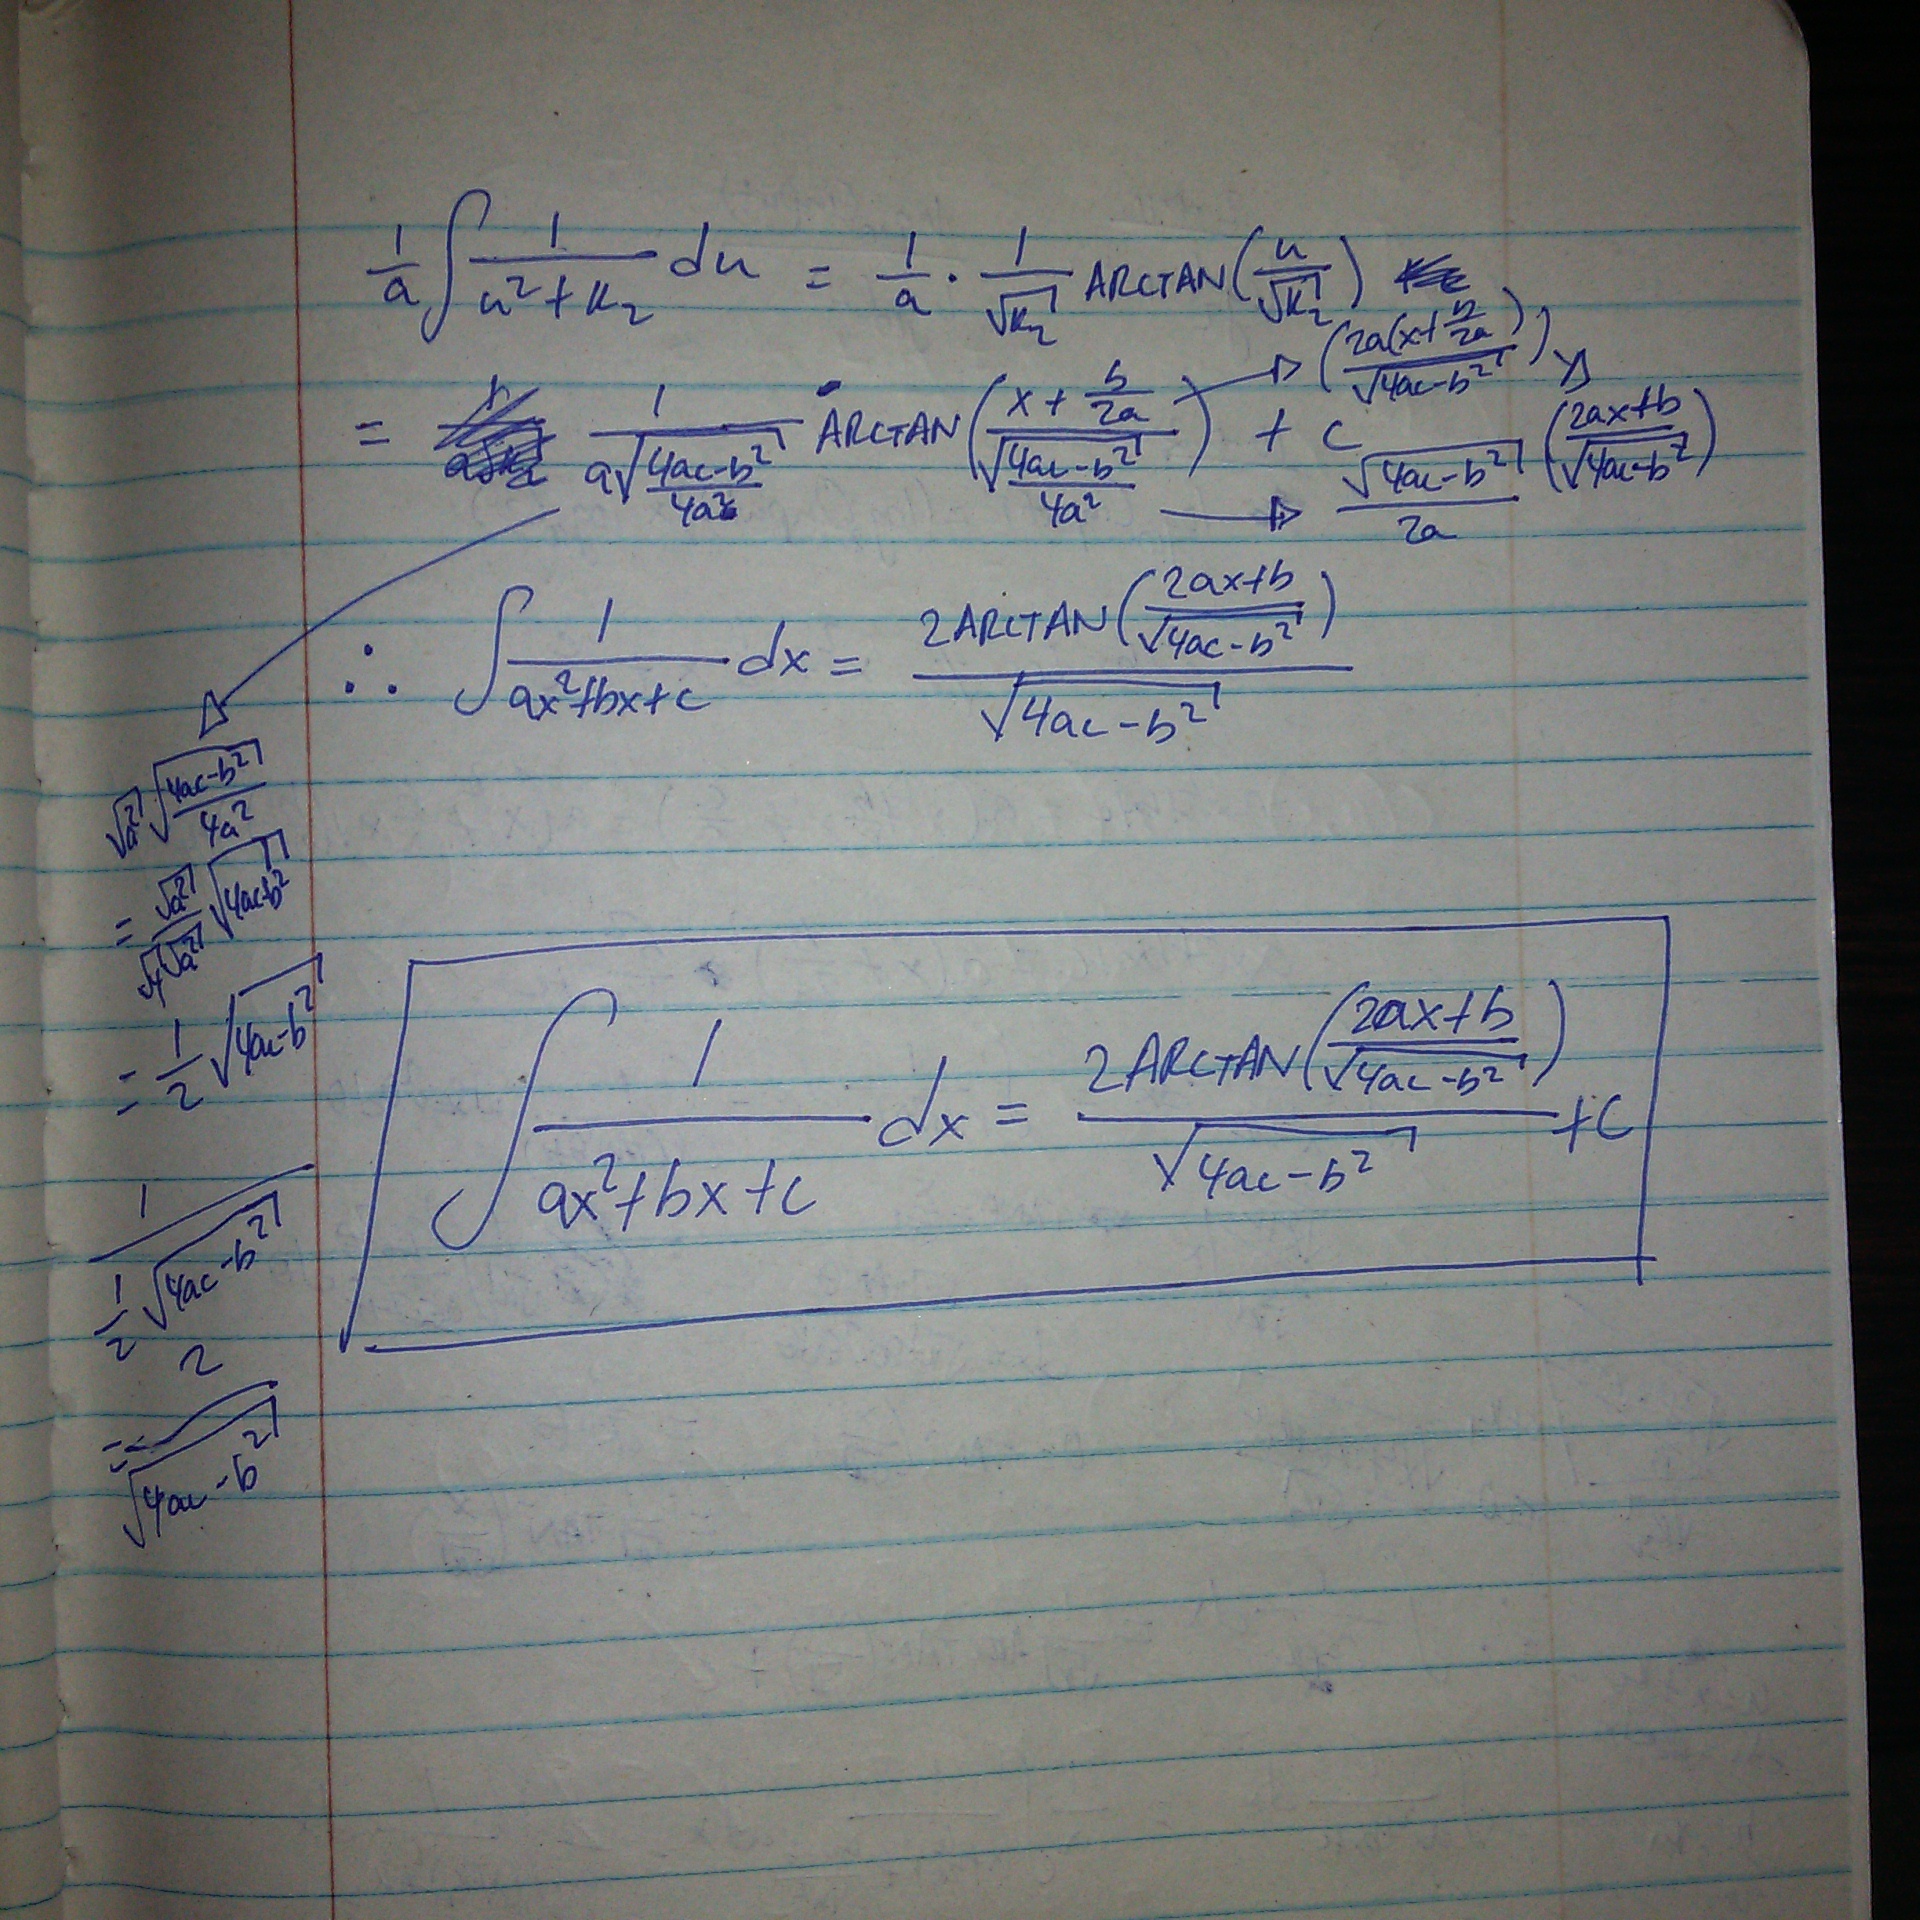 1/a ∫ 1/(u² + K₂) du = 1/a · 1/√K₂ ARCTAN(u/√K₂)
= 1/(a√((4ac-b²)/4a²)) ARCTAN((x + b/2a)/√((4ac-b²)/4a²)) + C
→ (2a(x+b/2a)/√(4ac-b²)) → ((2ax+b)/√(4ac-b²))
→ √(4ac-b²)/2a
∴ ∫ 1/(ax²+bx+c) dx = 2ARCTAN((2ax+b)/√(4ac-b²))/√(4ac-b²)
√a² √((4ac-b²)/4a²)
= √a²/(√4√a²) √(4ac-b²)
= 1/2 √(4ac-b²)
1/(1/2 √(4ac-b²))
= 2/√(4ac-b²)
∫ 1/(ax²+bx+c) dx = 2ARCTAN((2ax+b)/√(4ac-b²))/√(4ac-b²) + C